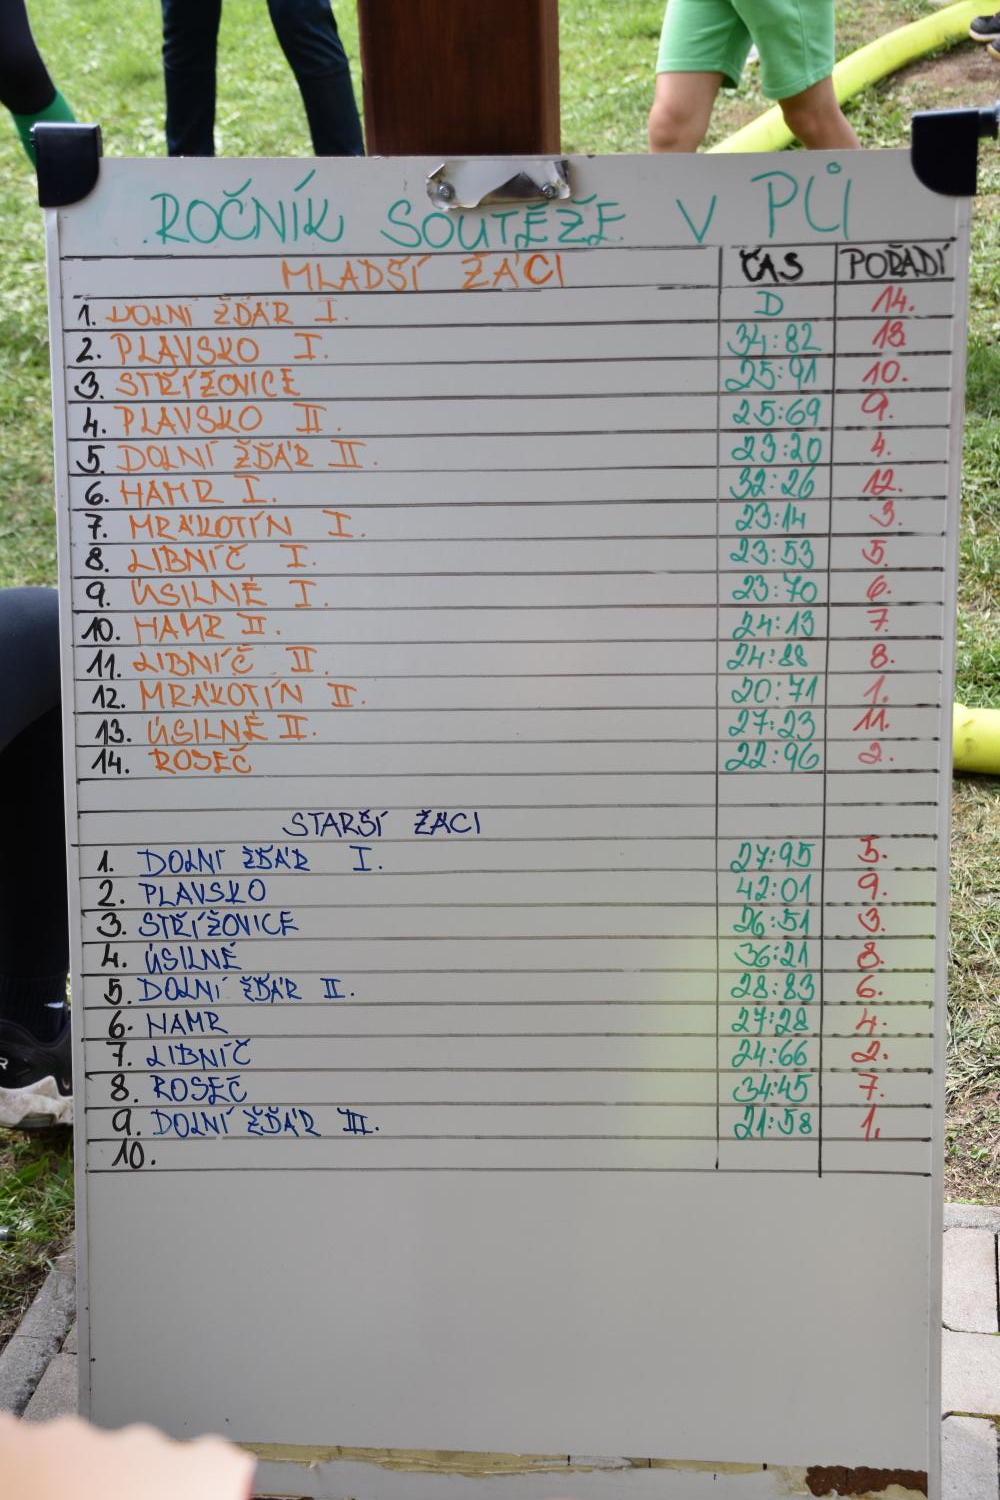 ROČNÍK SOUTĚŽE V PÚ
MLADŠÍ ŽÁCI ČAS POŘADÍ
1. DOLNÍ ŽĎÁR I. D 14.
2. PLAVSKO I. 34:82 13.
3. STŘÍŽOVICE 25:91 10.
4. PLAVSKO II. 25:69 9.
5. DOLNÍ ŽĎÁR II. 23:20 4.
6. HAMR I. 32:26 12.
7. MRÁKOTÍN I. 23:14 3.
8. LIBNÍČ I. 23:53 5.
9. ÚSILNÉ I. 23:70 6.
10. HAMR II. 24:13 7.
11. LIBNÍČ II. 24:88 8.
12. MRÁKOTÍN II. 20:71 1.
13. ÚSILNÉ II. 27:23 11.
14. ROSEČ 22:96 2.
STARŠÍ ŽÁCI
1. DOLNÍ ŽĎÁR I. 27:95 5.
2. PLAVSKO 42:01 9.
3. STŘÍŽOVICE 26:51 3.
4. ÚSILNÉ 36:21 8.
5. DOLNÍ ŽĎÁR II. 28:83 6.
6. HAMR 27:28 4.
7. LIBNÍČ 24:66 2.
8. ROSEČ 34:45 7.
9. DOLNÍ ŽĎÁR III. 21:58 1.
10.